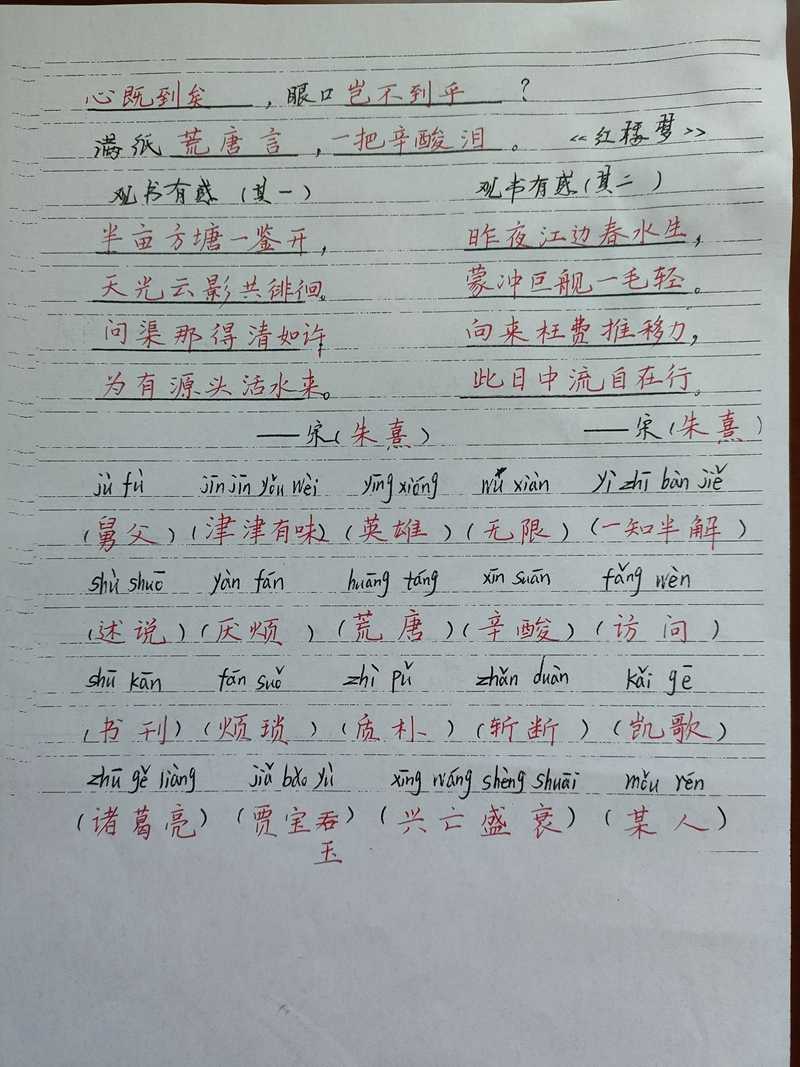 心既到矣，眼口岂不到乎？
满纸荒唐言，一把辛酸泪。《红楼梦》
观书有感（其一） 观书有感（其二）
半亩方塘一鉴开， 昨夜江边春水生，
天光云影共徘徊。 蒙冲巨舰一毛轻。
问渠那得清如许 向来枉费推移力，
为有源头活水来。 此日中流自在行。
——宋（朱熹） ——宋（朱熹）
jù fù jīn jīn yǒu wèi yīng xióng wú xiàn yì zhī bàn jiě
（舅父）（津津有味）（英雄）（无限）（一知半解）
shù shuō yàn fán huāng táng xīn suān fǎng wèn
（述说）（厌烦）（荒唐）（辛酸）（访问）
shū kān fán suǒ zhì pǔ zhǎn duàn kǎi gē
（书刊）（烦琐）（质朴）（斩断）（凯歌）
zhū gě liàng jiǎ bǎo yù xīng wáng shèng shuāi mǒu rén
（诸葛亮）（贾宝）（兴亡盛衰）（某人）
玉